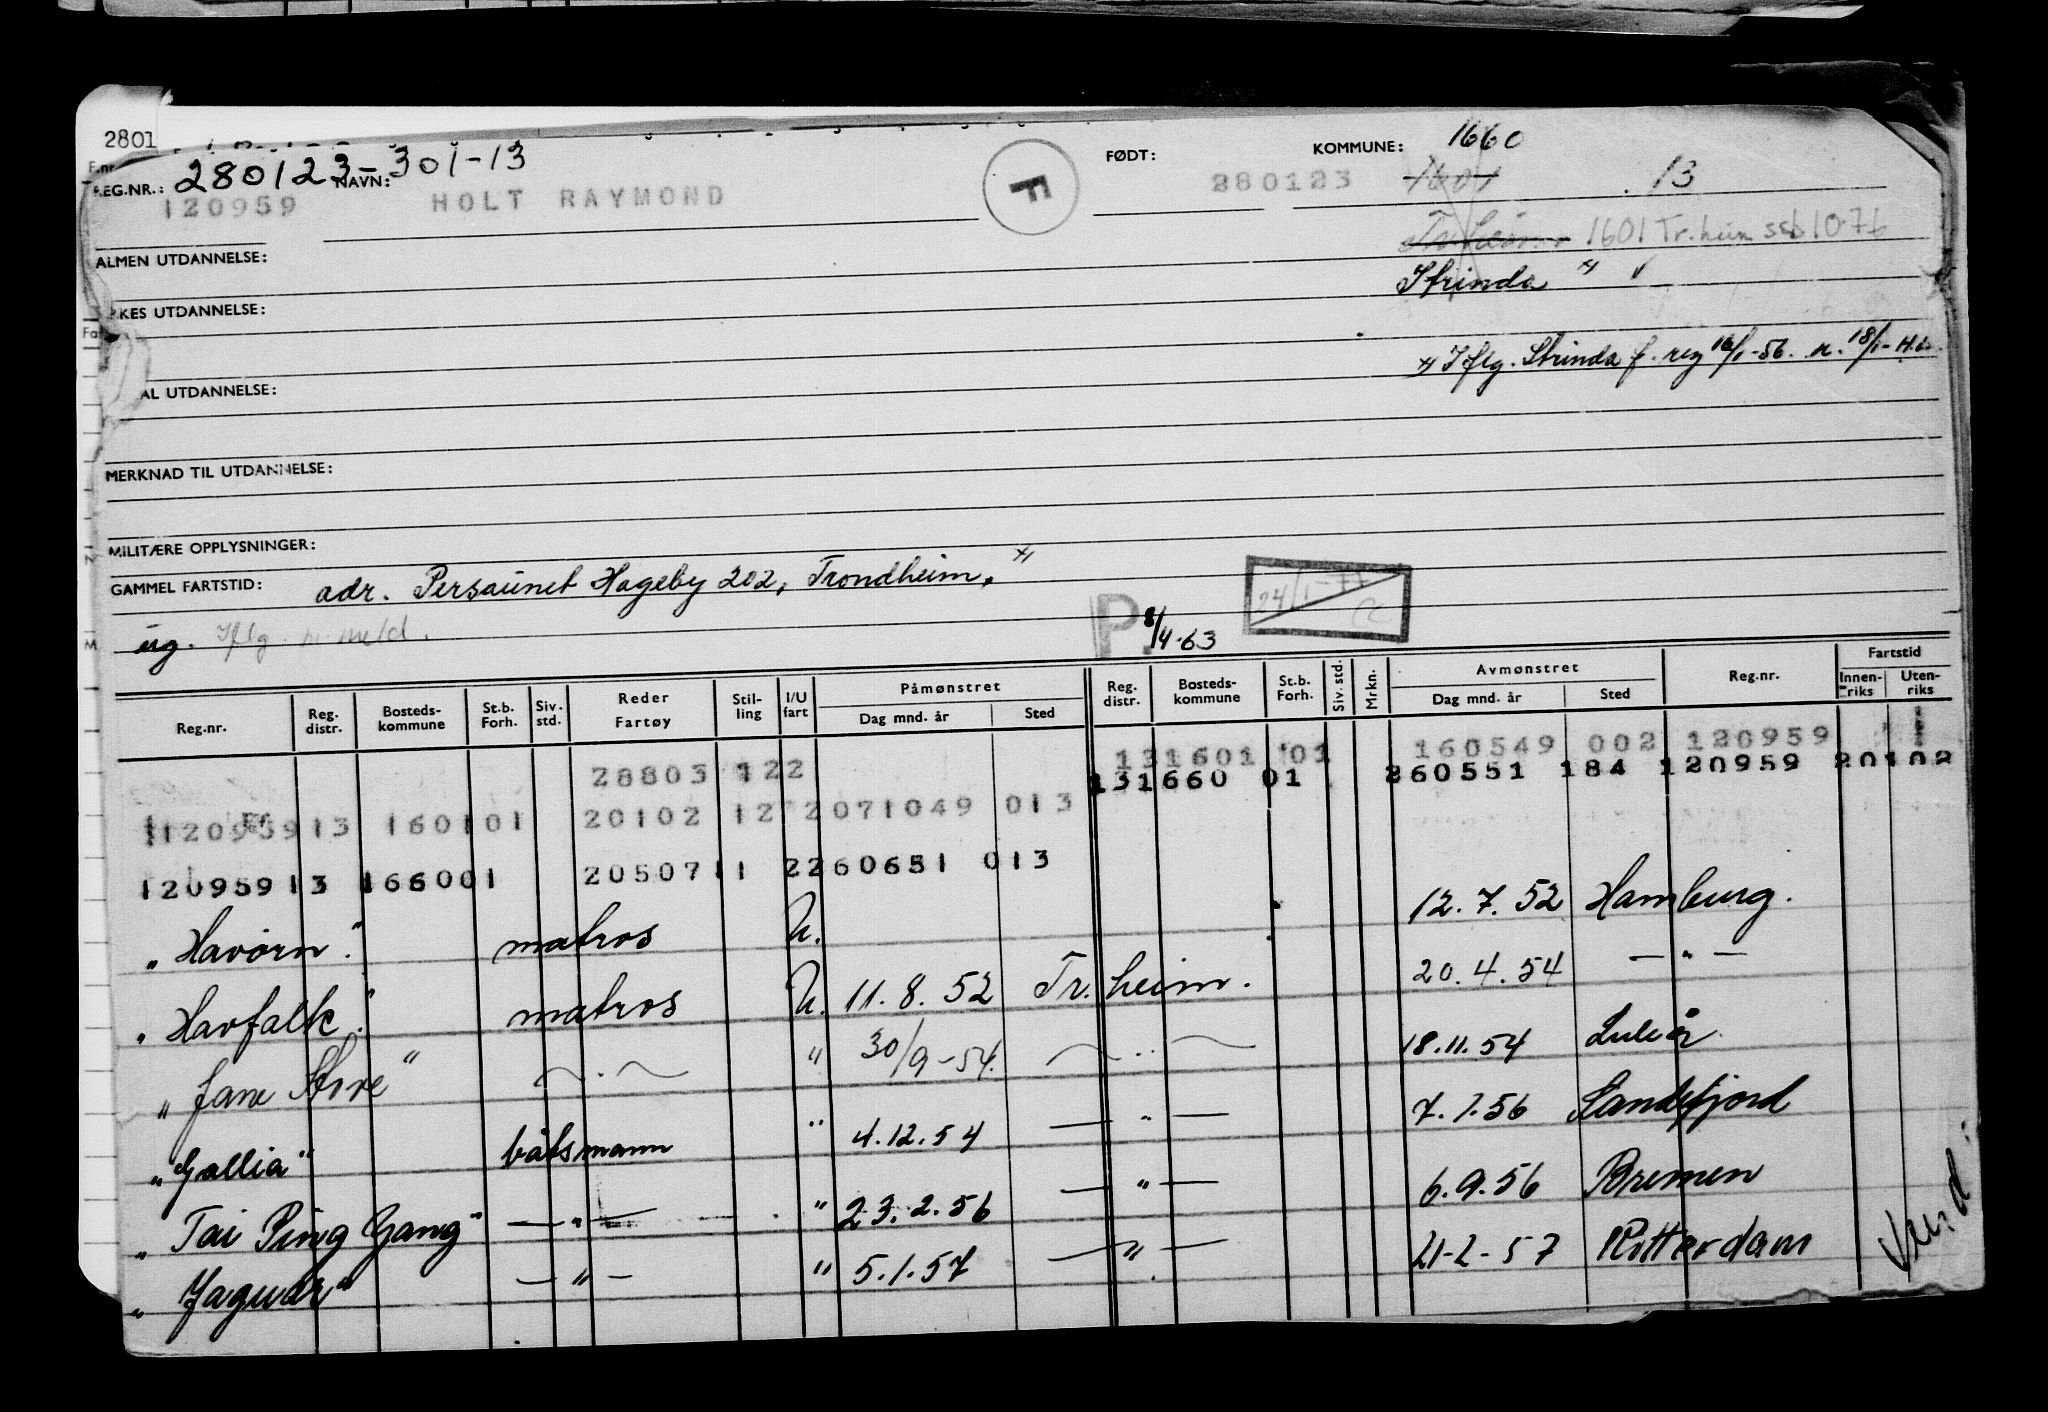 2801
F.nr
REG.NR.: 280123-301-13 NAVN: FØDT: KOMMUNE: 1660
120959 HOLT RAYMOND F 280123 1601 13
Tr.heim 1601 Tr.heim ssb 10.76
ALMEN UTDANNELSE: Strinda x) v
KES UTDANNELSE:
x) Iflg. Strinda f. reg 16/1-56. n. 18/1-
AL UTDANNELSE:
MERKNAD TIL UTDANNELSE:
MILITÆRE OPPLYSNINGER:
GAMMEL FARTSTID: adr. Persaunet Hageby 202, Trondheim. x) 24/1-77
ug. Iflg. n. meld. P. 8/4-63
Reg.nr. Reg. distr. Bosteds-kommune St.b. Forh. Siv. std. Reder Fartøy Stil-ling I/U fart Påmønstret Dag mnd. år Sted Reg. distr. Bosteds-kommune St.b. Forh. Siv. std. Mrkn. Avmønstret Dag mnd. år Sted Reg.nr. Fartstid Innen-riks Uten-riks
28803 122 131601 01 160549 002 120959 1
131660 01 260551 184 120959 20102
112095913 160101 20102 12 2071049 013
12095913 166001 20507 11 2260651 013
"Havørn". matros U. 12.7.52 Hamburg.
"Havfalk". matros U. 11.8.52 Tr.heim. 20.4.54 — " —
"Jane Stove" — " — " 30/9-54. — " — 18.11.54 Luleå
"Gallia" båtsmann " 4.12.54 — " — 7.1.56 Sandefjord
"Tai Ping Yang" — " — " 23.2.56 — " — 6.9.56 Bremen
"Jaguar" — " — " 5.1.57 — " — 21-2-57 Rotterdam
Vend.